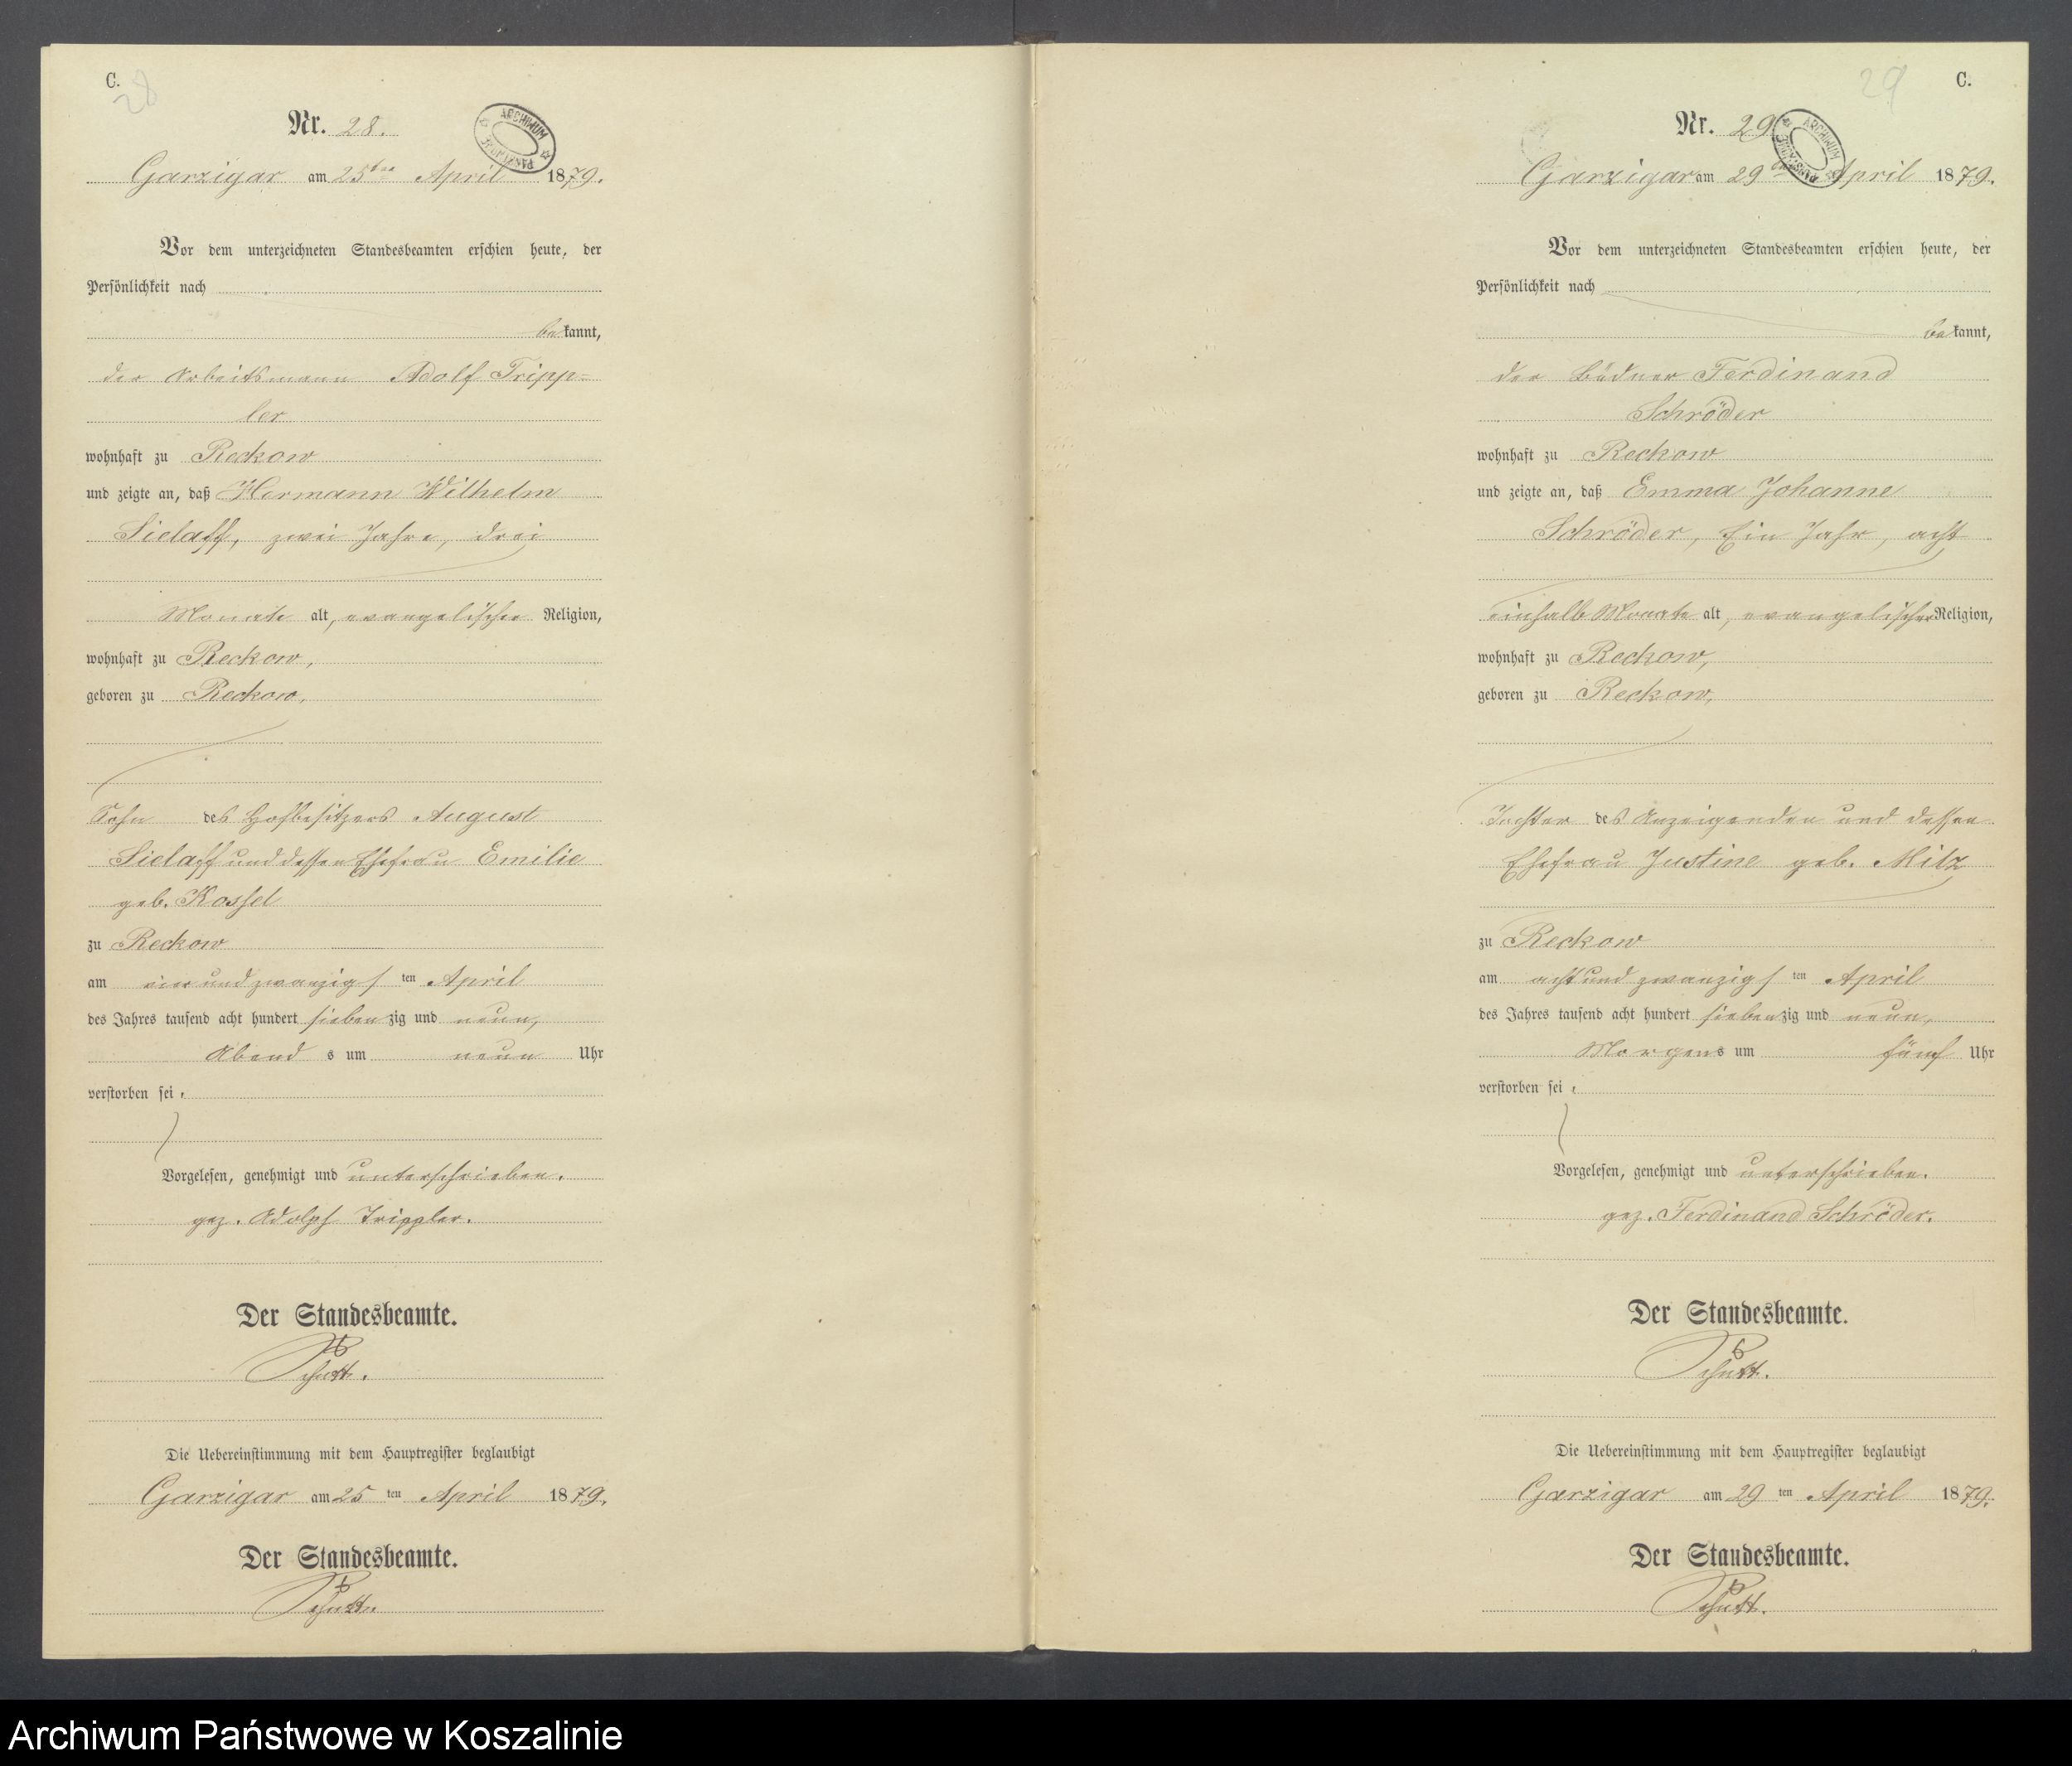 C.
28
Nr. 28.
ARCHIWUM PAŃSTWOWE
Garzigar am 25ten April 1879.
Vor dem unterzeichneten Standesbeamten erschien heute, der
Persönlichkeit nach
bekannt,
der Arbeitsmann Adolf Tripp=
ler
wohnhaft zu Reckow
und zeigte an, daß Hermann Wilhelm
Sielaff, zwei Jahre, drei
Monate alt, evangelischer Religion,
wohnhaft zu Reckow,
geboren zu Reckow,
Sohn des Hofbesitzers August
Sielaff und dessen Ehefrau Emilie
geb. Kossel
zu Reckow
am vier und zwanzigsten April
des Jahres tausend acht hundert siebenzig und neun,
Abends um neun Uhr
verstorben sei.
Vorgelesen, genehmigt und unterschrieben.
gez. Adolph Trippler.
Der Standesbeamte.
Die Uebereinstimmung mit dem Hauptregister beglaubigt
Garzigar am 25 ten April 1879.
Der Standesbeamte.
29
C.
Nr. 29
ARCHIWUM PAŃSTWOWE
Garzigar am 29 April 1879.
Vor dem unterzeichneten Standesbeamten erschien heute, der
Persönlichkeit nach
bekannt,
der Büdner Ferdinand
Schröder
wohnhaft zu Reckow
und zeigte an, daß Emma Johanne
Schröder, Ein Jahr, acht
einhalb Monate alt, evangelischer Religion,
wohnhaft zu Reckow,
geboren zu Reckow,
Tochter des Anzeigenden und dessen
Ehefrau Justine geb. Milz
zu Reckow
am acht und zwanzigsten April
des Jahres tausend acht hundert siebenzig und neun,
Morgens um fünf Uhr
verstorben sei.
Vorgelesen, genehmigt und unterschrieben.
gez. Ferdinand Schröder.
Der Standesbeamte.
Die Uebereinstimmung mit dem Hauptregister beglaubigt
Garzigar am 29 ten April 1879.
Der Standesbeamte.
Archiwum Państwowe w Koszalinie